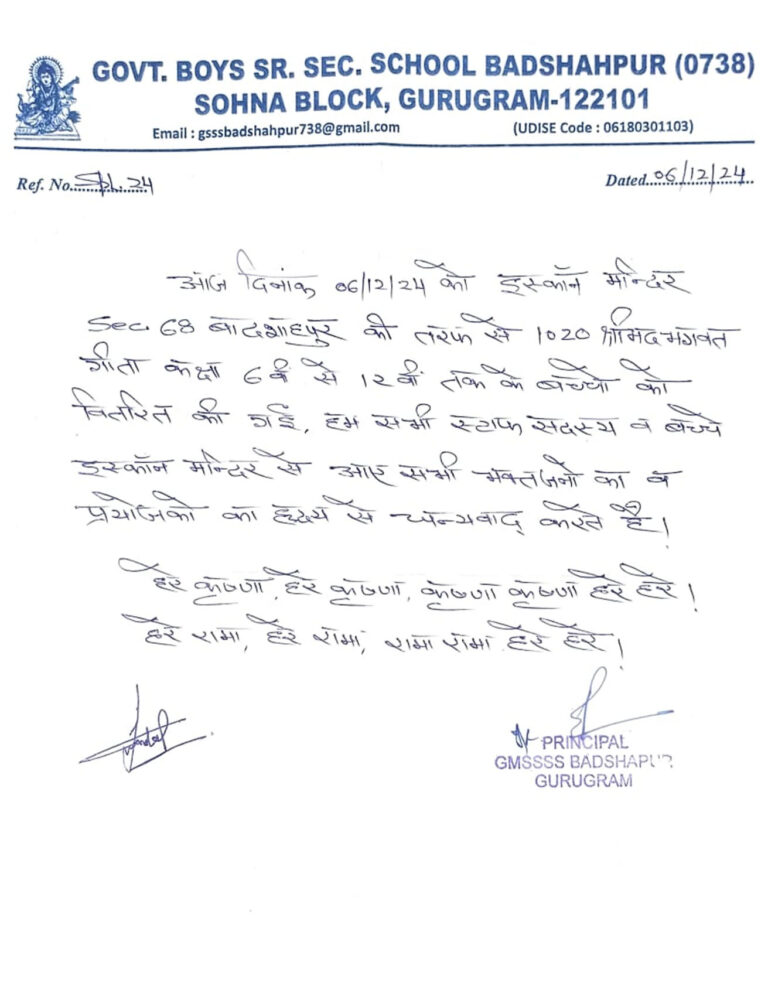 GOVT. BOYS SR. SEC. SCHOOL BADSHAHPUR (0738)
SOHNA BLOCK, GURUGRAM-122101
Email : gsssbadshahpur738@gmail.com (UDISE Code : 06180301103)
Ref. No. Spl. 24 Dated. 06/12/24
आज दिनांक 06/12/24 को इस्कॉन मन्दिर
Sec. 68 बादशाहपुर की तरफ से 1020 श्रीमद भगवत
गीता कक्षा 6वीं से 12वीं तक के बच्चो को
वितरित की गई, हम सभी स्टाफ सदस्य व बच्चे
इस्कॉन मन्दिर से आए सभी भक्तजनो का व
प्रयोजको का ह्रदय से धन्यवाद् करते है।
हरे कृष्णा, हरे कृष्णा, कृष्णा कृष्णा हरे हरे।
हरे रामा, हरे रामा, रामा रामा हरे हरे।
PRINCIPAL
GMSSSS BADSHAPUR
GURUGRAM